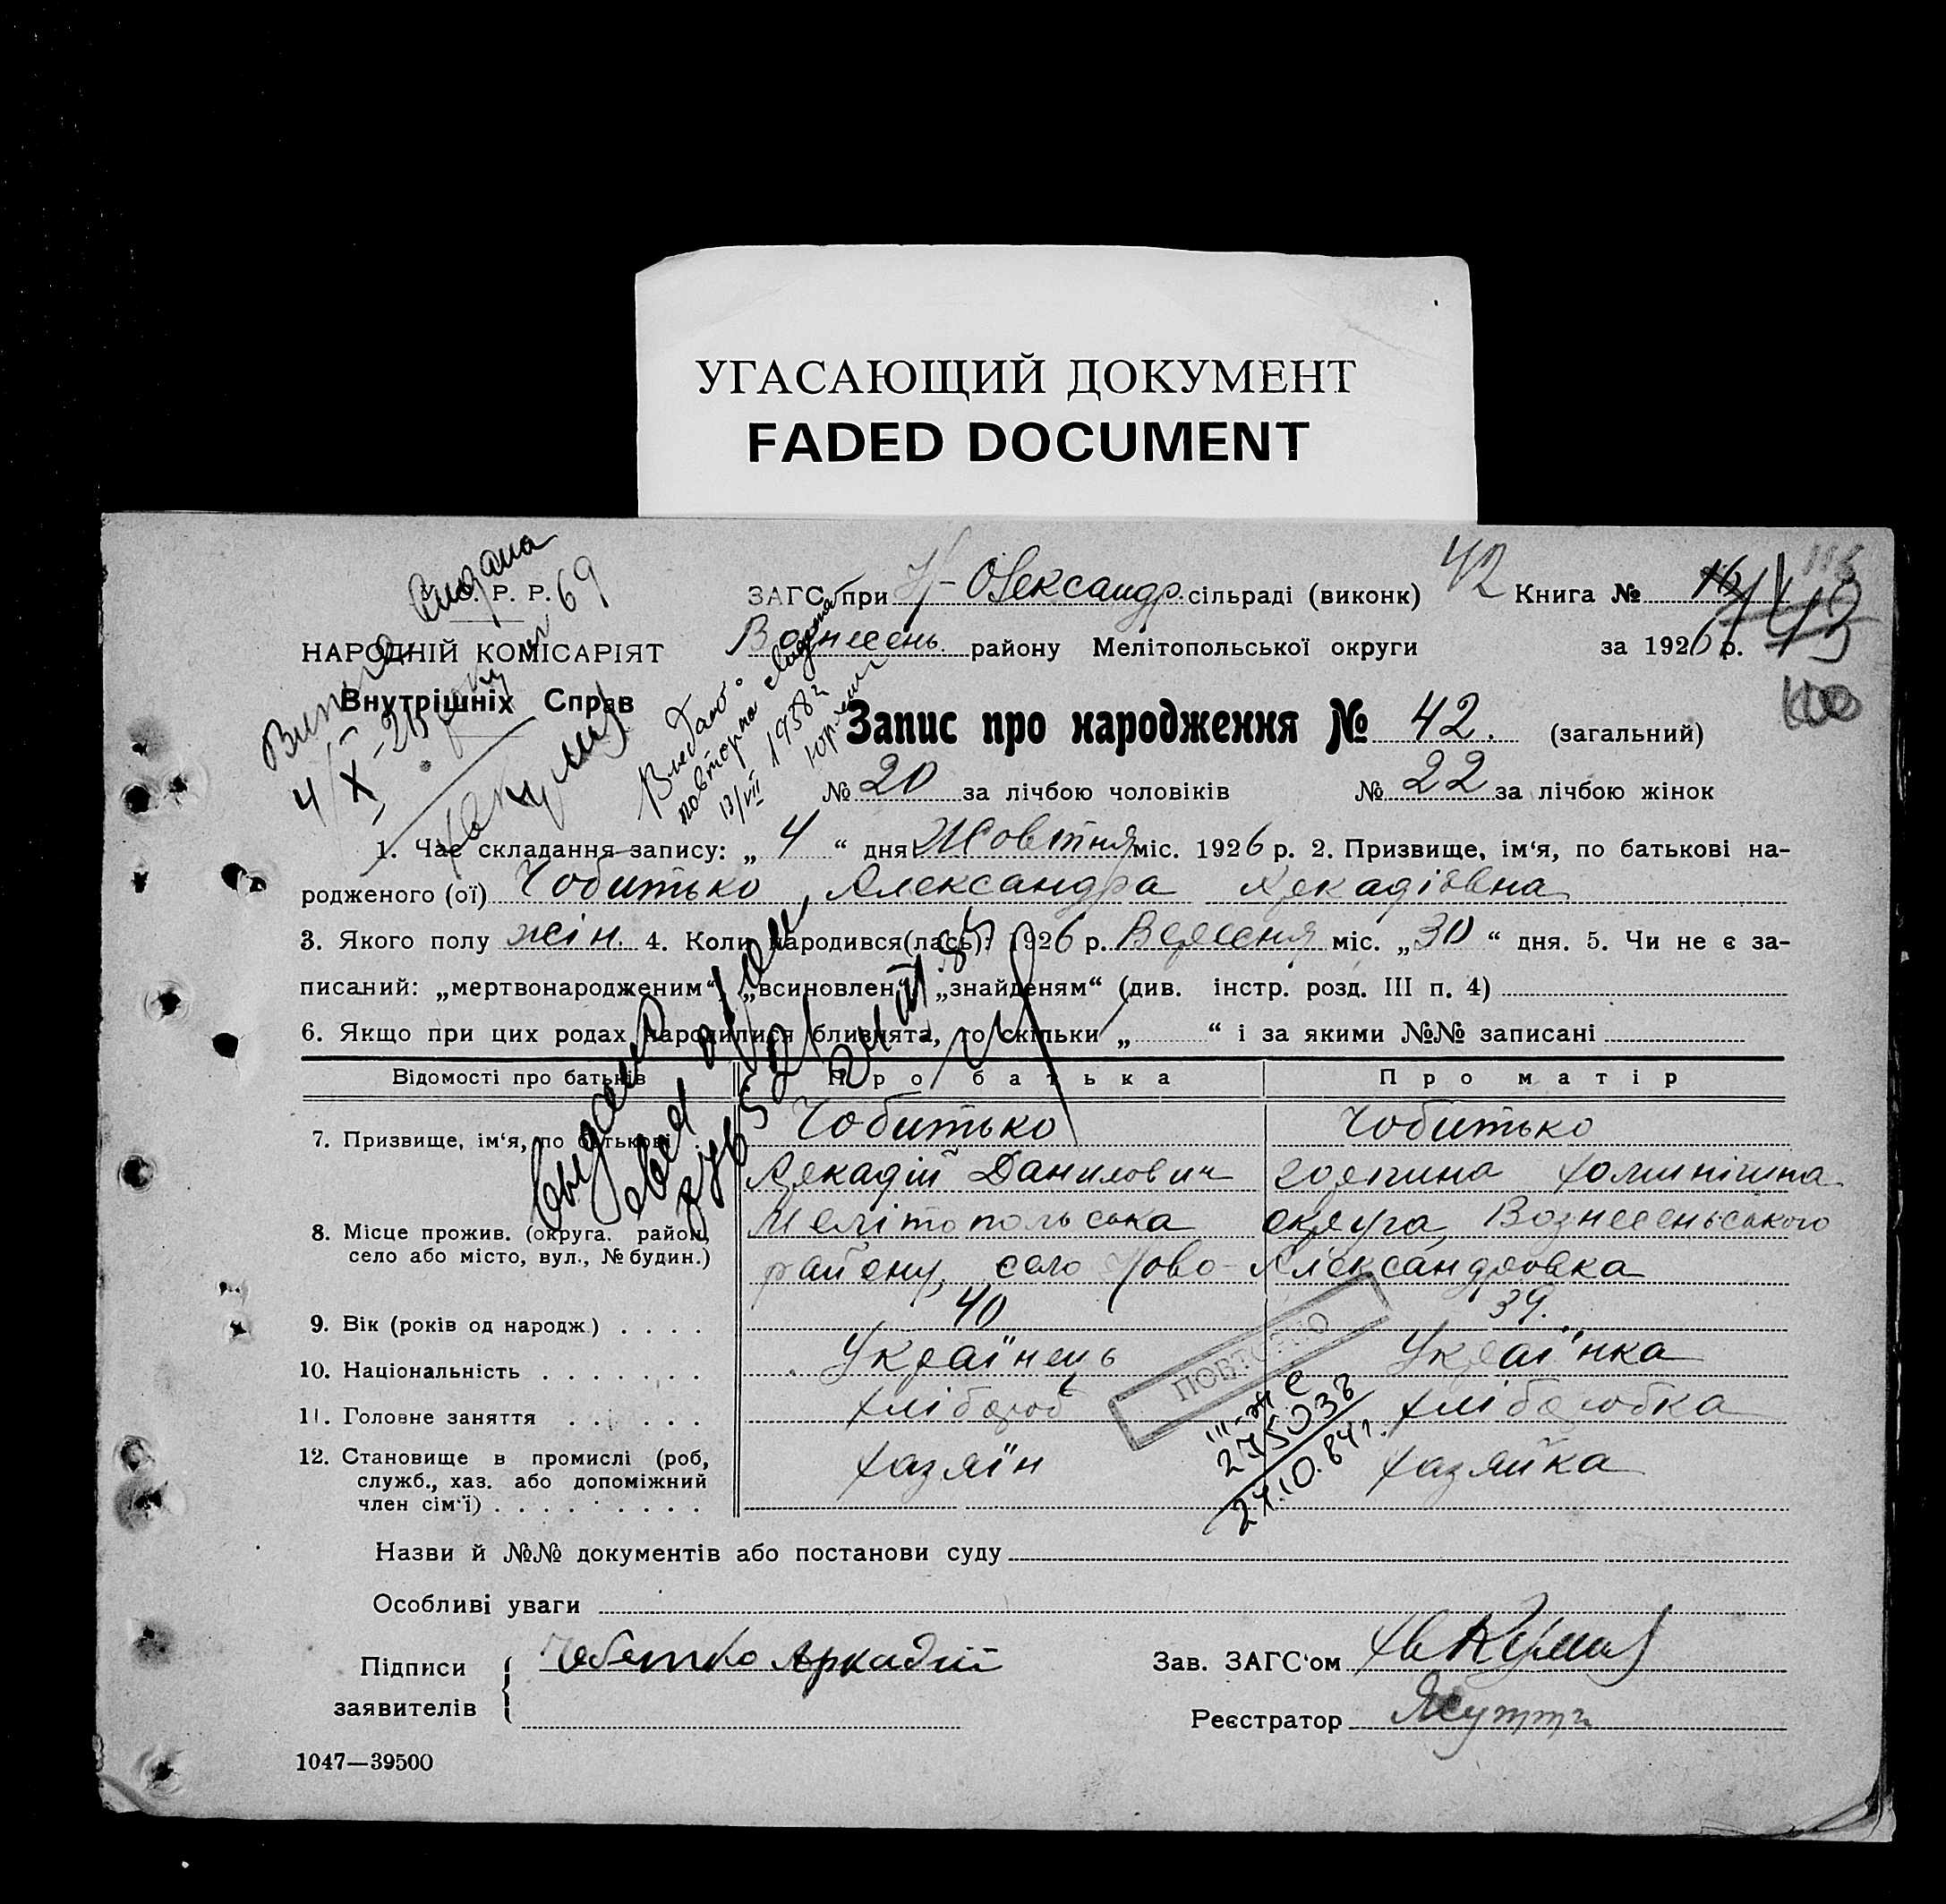 УГАСАЮЩИЙ ДОКУМЕНТ
FADED DOCUMENT
Р. Р.
НАРОДНІЙ КОМІСАРІЯТ
Внутрішніх Справ
Видана
4/X-26
69
ЗАГС при Н-Олександр. сільраді (виконк) 42 Книга №
Вознесень. району Мелітопольської округи за 1926 р.
Видано
повторна
13/VII 1938 г
Запис про народження № 42. (загальний)
№ 20 за лічбою чоловіків № 22 за лічбою жінок
1. Час складання запису: „ 4 “ дня Жовтня міс. 1926 р. 2. Призвище, ім‘я, по батькові на-
родженого (ої) Чобитько Александра Аркадіївна
3. Якого полу жін. 4. Коли народився(лась): 1926 р. Вересня міс. „ 30 “ дня. 5. Чи не є за-
писаний: „мертвонародженим“, „всиновлен“, „знайденям“ (див. інстр. розд. III п. 4)
6. Якщо при цих родах народилися близнята, то скільки „ “ і за якими №№ записані
Відомості про батьків Про батька Про матір
7. Призвище, ім‘я, по батькові Чобитько Чобитько
Аркадій Данилович
8. Місце прожив. (округа. район, Мелітопольська округа, Вознесенського
село або місто, вул., № будин.) району, село Ново-Александровка
9. Вік (років од народж) . . . . 40 39.
10. Національність . . . . . . . Українець Українка
11. Головне заняття . . . . . . хлібороб хліборобка
12. Становище в промислі (роб, хазяїн хазяйка
служб., хаз. або допоміжний
член сім‘ї) . . . . . . . . .
ПОВТОРНО
27.10.84г.
Назви й №№ документів або постанови суду
Особливі уваги
Підписи Чобитько Аркадій Зав. ЗАГС‘ом
заявителів Реєстратор
1047—39500